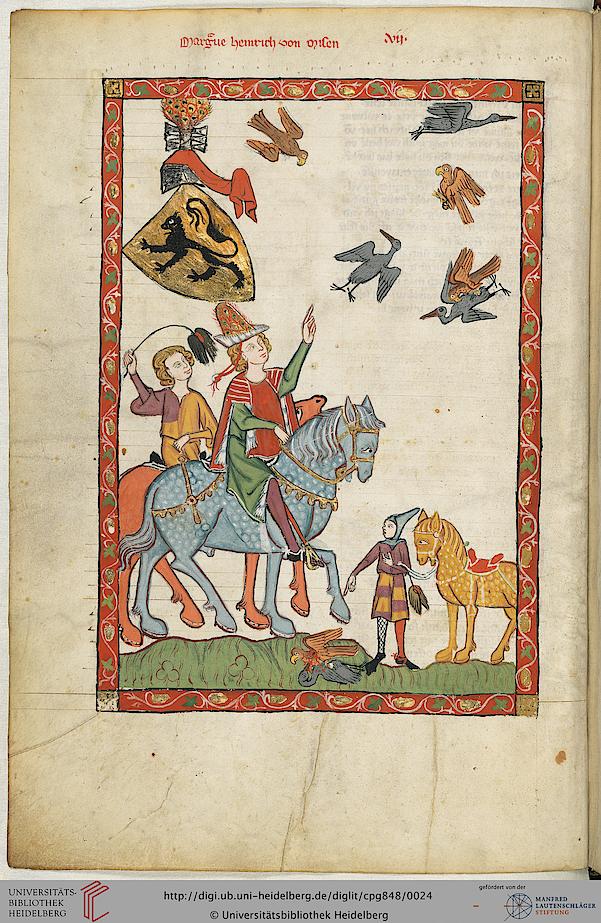 Margue heinrich von misen vij·
UNIVERSITÄTS-
BIBLIOTHEK
HEIDELBERG
http://digi.ub.uni-heidelberg.de/diglit/cpg848/0024
© Universitätsbibliothek Heidelberg
gefördert von der
MANFRED
LAUTENSCHLÄGER
STIFTUNG